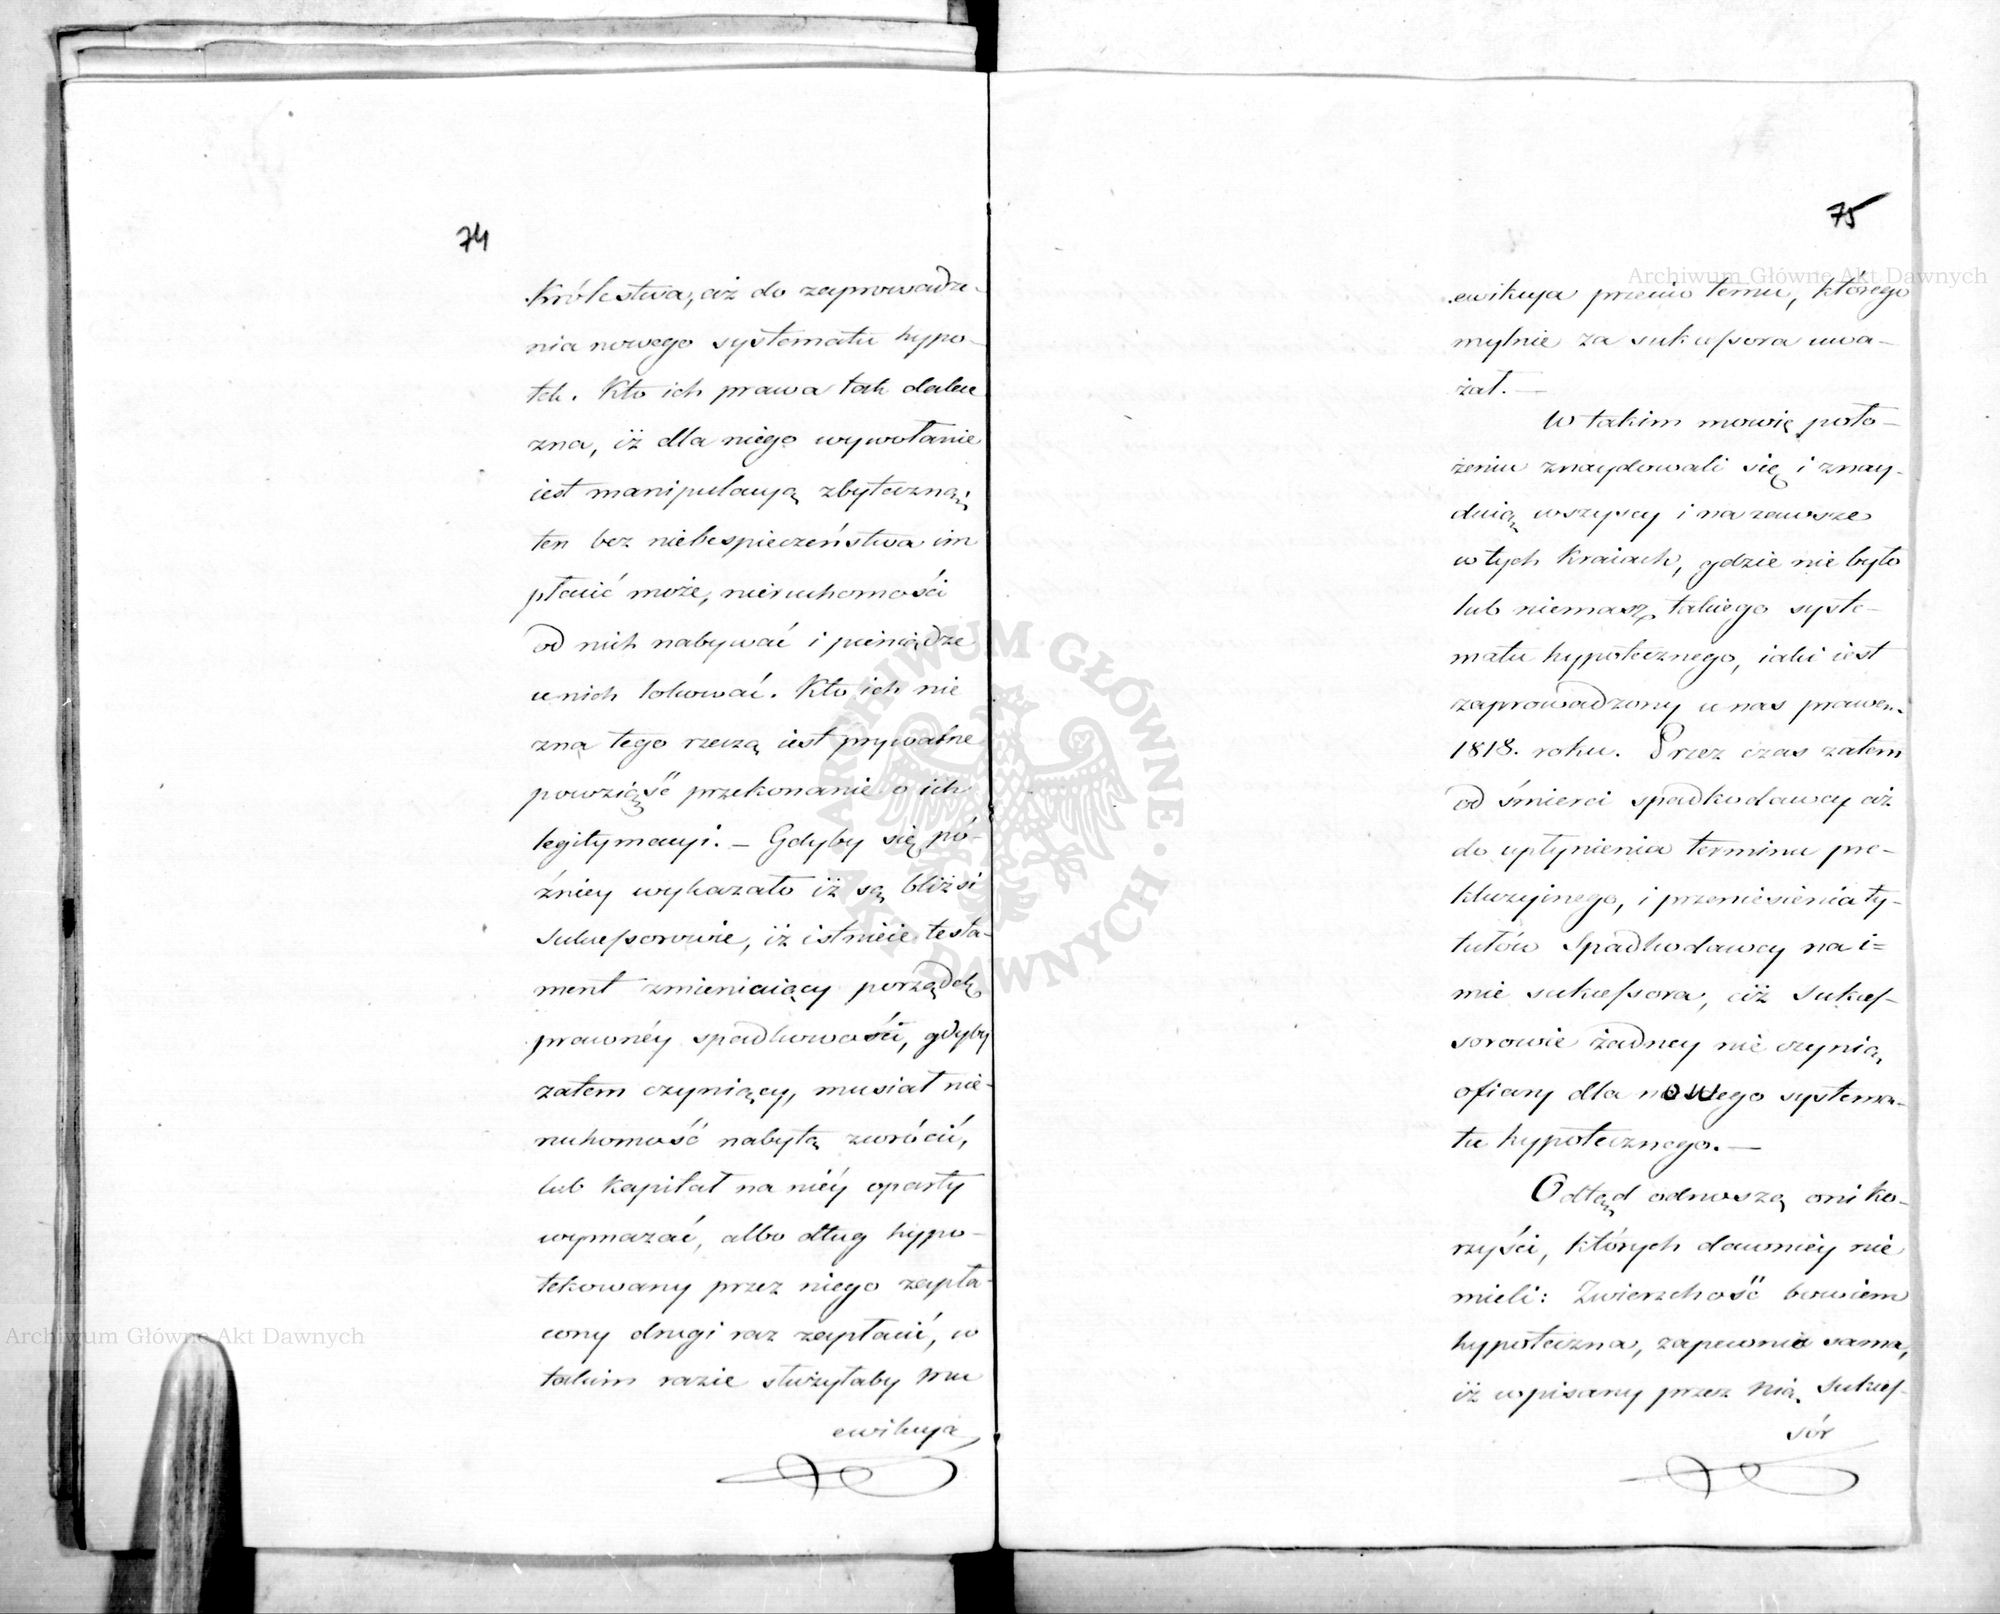 74
Królestwa, aż do zaprowadze-
nia nowego systematu hypo-
tek. Kto ich prawa tak dalece
zna, iż dla niego wywołanie
iest manipulacyą zbyteczną;
ten bez niebespieczeństwa im
płacić może, nieruchomości
od nich nabywać i pieniądze
u nich lokować. Kto ich nie
zna tego rzeczą iest prywatne
powziąść przekonanie o ich
legitymacyi. — Gdyby się pó-
źniey wykazało iż są bliżsi
Sukcessorowie, iż istnieie testa-
ment zmieniaiący porządek
prawnéy spadkowości, gdyby
zatem czyniący, musiał nie-
ruchomość nabytą zwrócić,
lub kapitał na niéy oparty
wymazać, albo dług hypo-
tekowany przez niego zapła-
cony drugi raz zapłacić, w
takim razie służyłaby mu
ewikcya
75
ewikcya przeciw temu, którego
mylnie za sukcessora uwa-
żał. —
W takim mowię poło-
żeniu znaydowali się i znay-
duią wszyscy i na zawsze
w tych Kraiach, gdzie nie było
lub niemasz takiego syste-
matu hypotecznego, iaki iest
zaprowadzony u nas prawem
1818. roku. Przez czas zatem
od śmierci spadkodawcy aż
do upłynienia terminu pre-
kluzyinego, i przeniesienia ty-
tułów Spadkodawcy na i=
mie sukcessora, ciż Sukces-
sorowie żadney nie czynią
ofiary dla nowego systema-
tu hypotecznego. —
Odtąd odnoszą oni ko-
rzyści, których dawniéy nie
mieli: Zwierzchość bowiem
hypoteczna, zapewnia sama,
iż wpisany przez nią Sukces-
sór
Archiwum Główne Akt Dawnych
Archiwum Główne Akt Dawnych
ARCHIWUM GŁÓWNE · AKT DAWNYCH ·